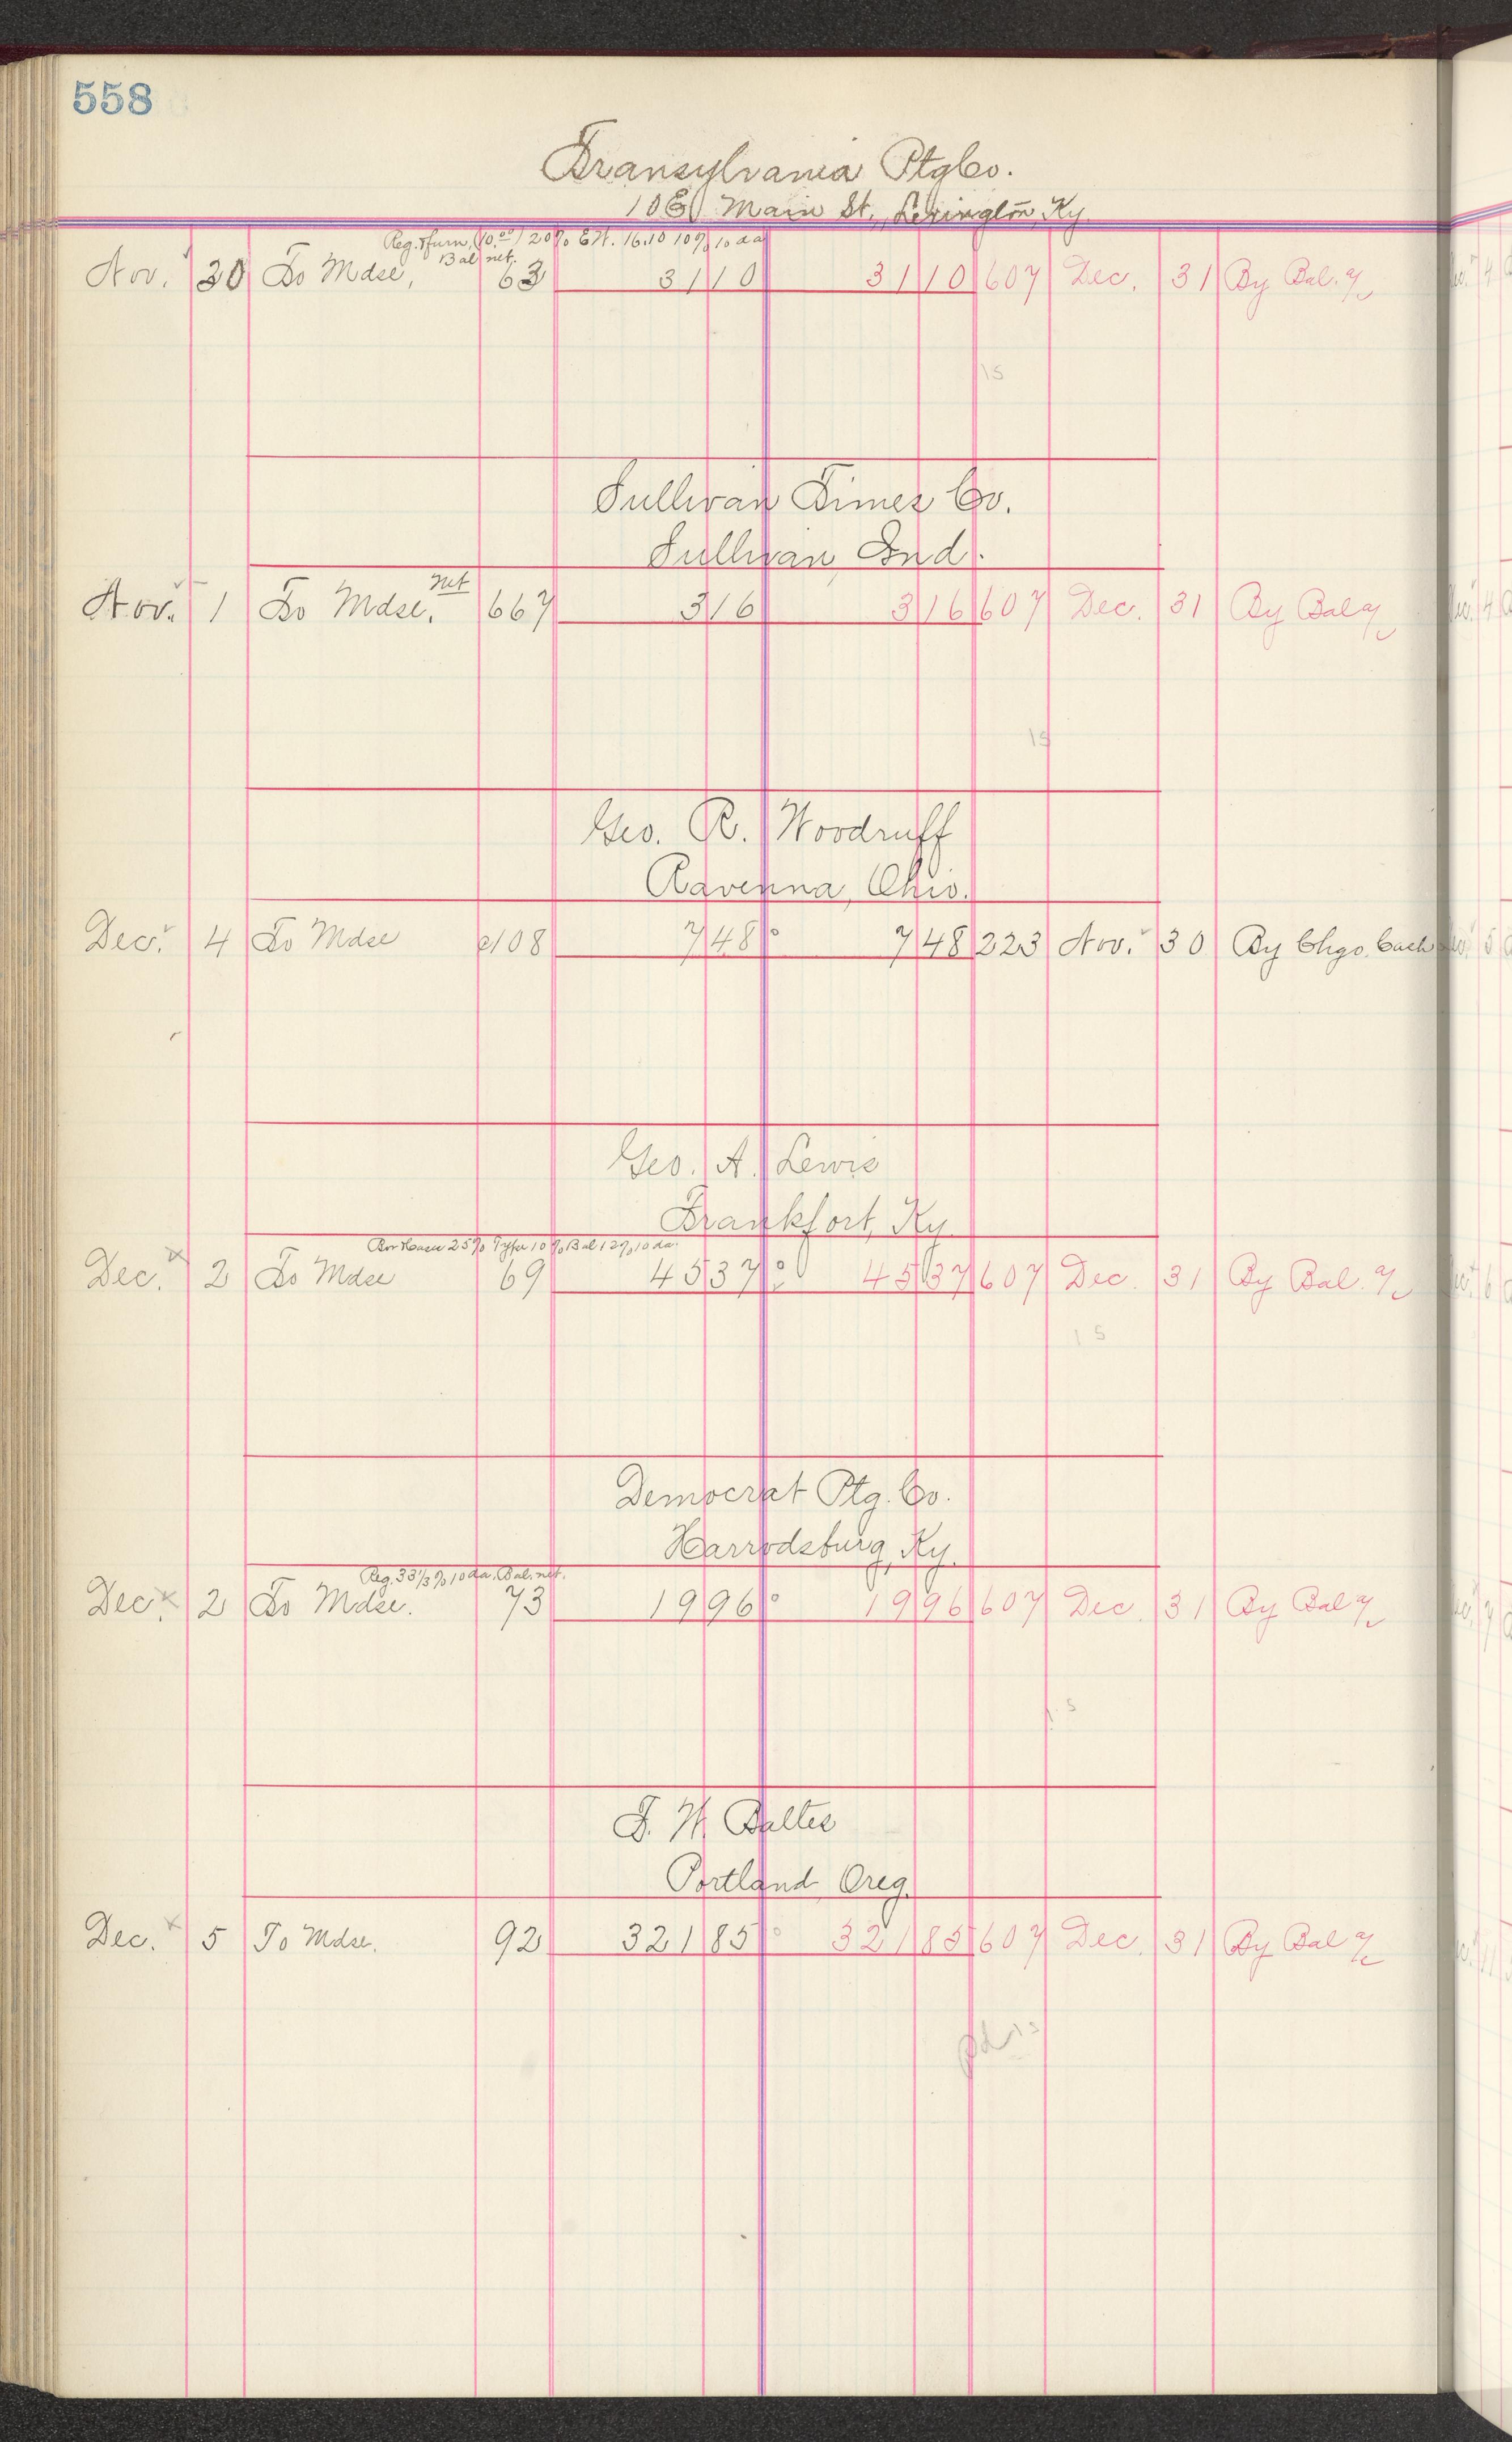 558
Transylvania Ptg Co.
108 Main St., Lexington, Ky.
Reg. & furn. (10.00) 20% Elt. 16.10 10% 10 da
Bal net.
Nov. 30 To Mdse, 63 31 10 31 10 607 Dec. 31 By Bal. a/c
15
Sullivan Times Co.
Sullivan Ind.
net
Nov. 1 To Mdse. 667 3 16 3 16 607 Dec. 31 By Bal a/c
15
Geo. R. Woodruff
Ravenna, Ohio.
Dec. 4 To Mdse c108 7 48 7 48 223 Nov. 30 By Chgo. Cash
Geo. A. Lewis
Frankfort, Ky.
25% Type 10% Bal 12% 10 da.
Dec. 2 To Mdse 69 45 37 45 37 607 Dec. 31 By Bal. a/c
15
Democrat Ptg. Co.
Harrodsburg, Ky.
Reg. 33 1/3% 10 da. Bal. net.
Dec. 2 To Mdse. 73 19 96 19 96 607 Dec. 31 By Bal a/c
15
F. W. Baltes
Portland Oreg.
Dec. 5 To Mdse. 92 321 85 321 85 607 Dec. 31 By Bal a/c
pd 15